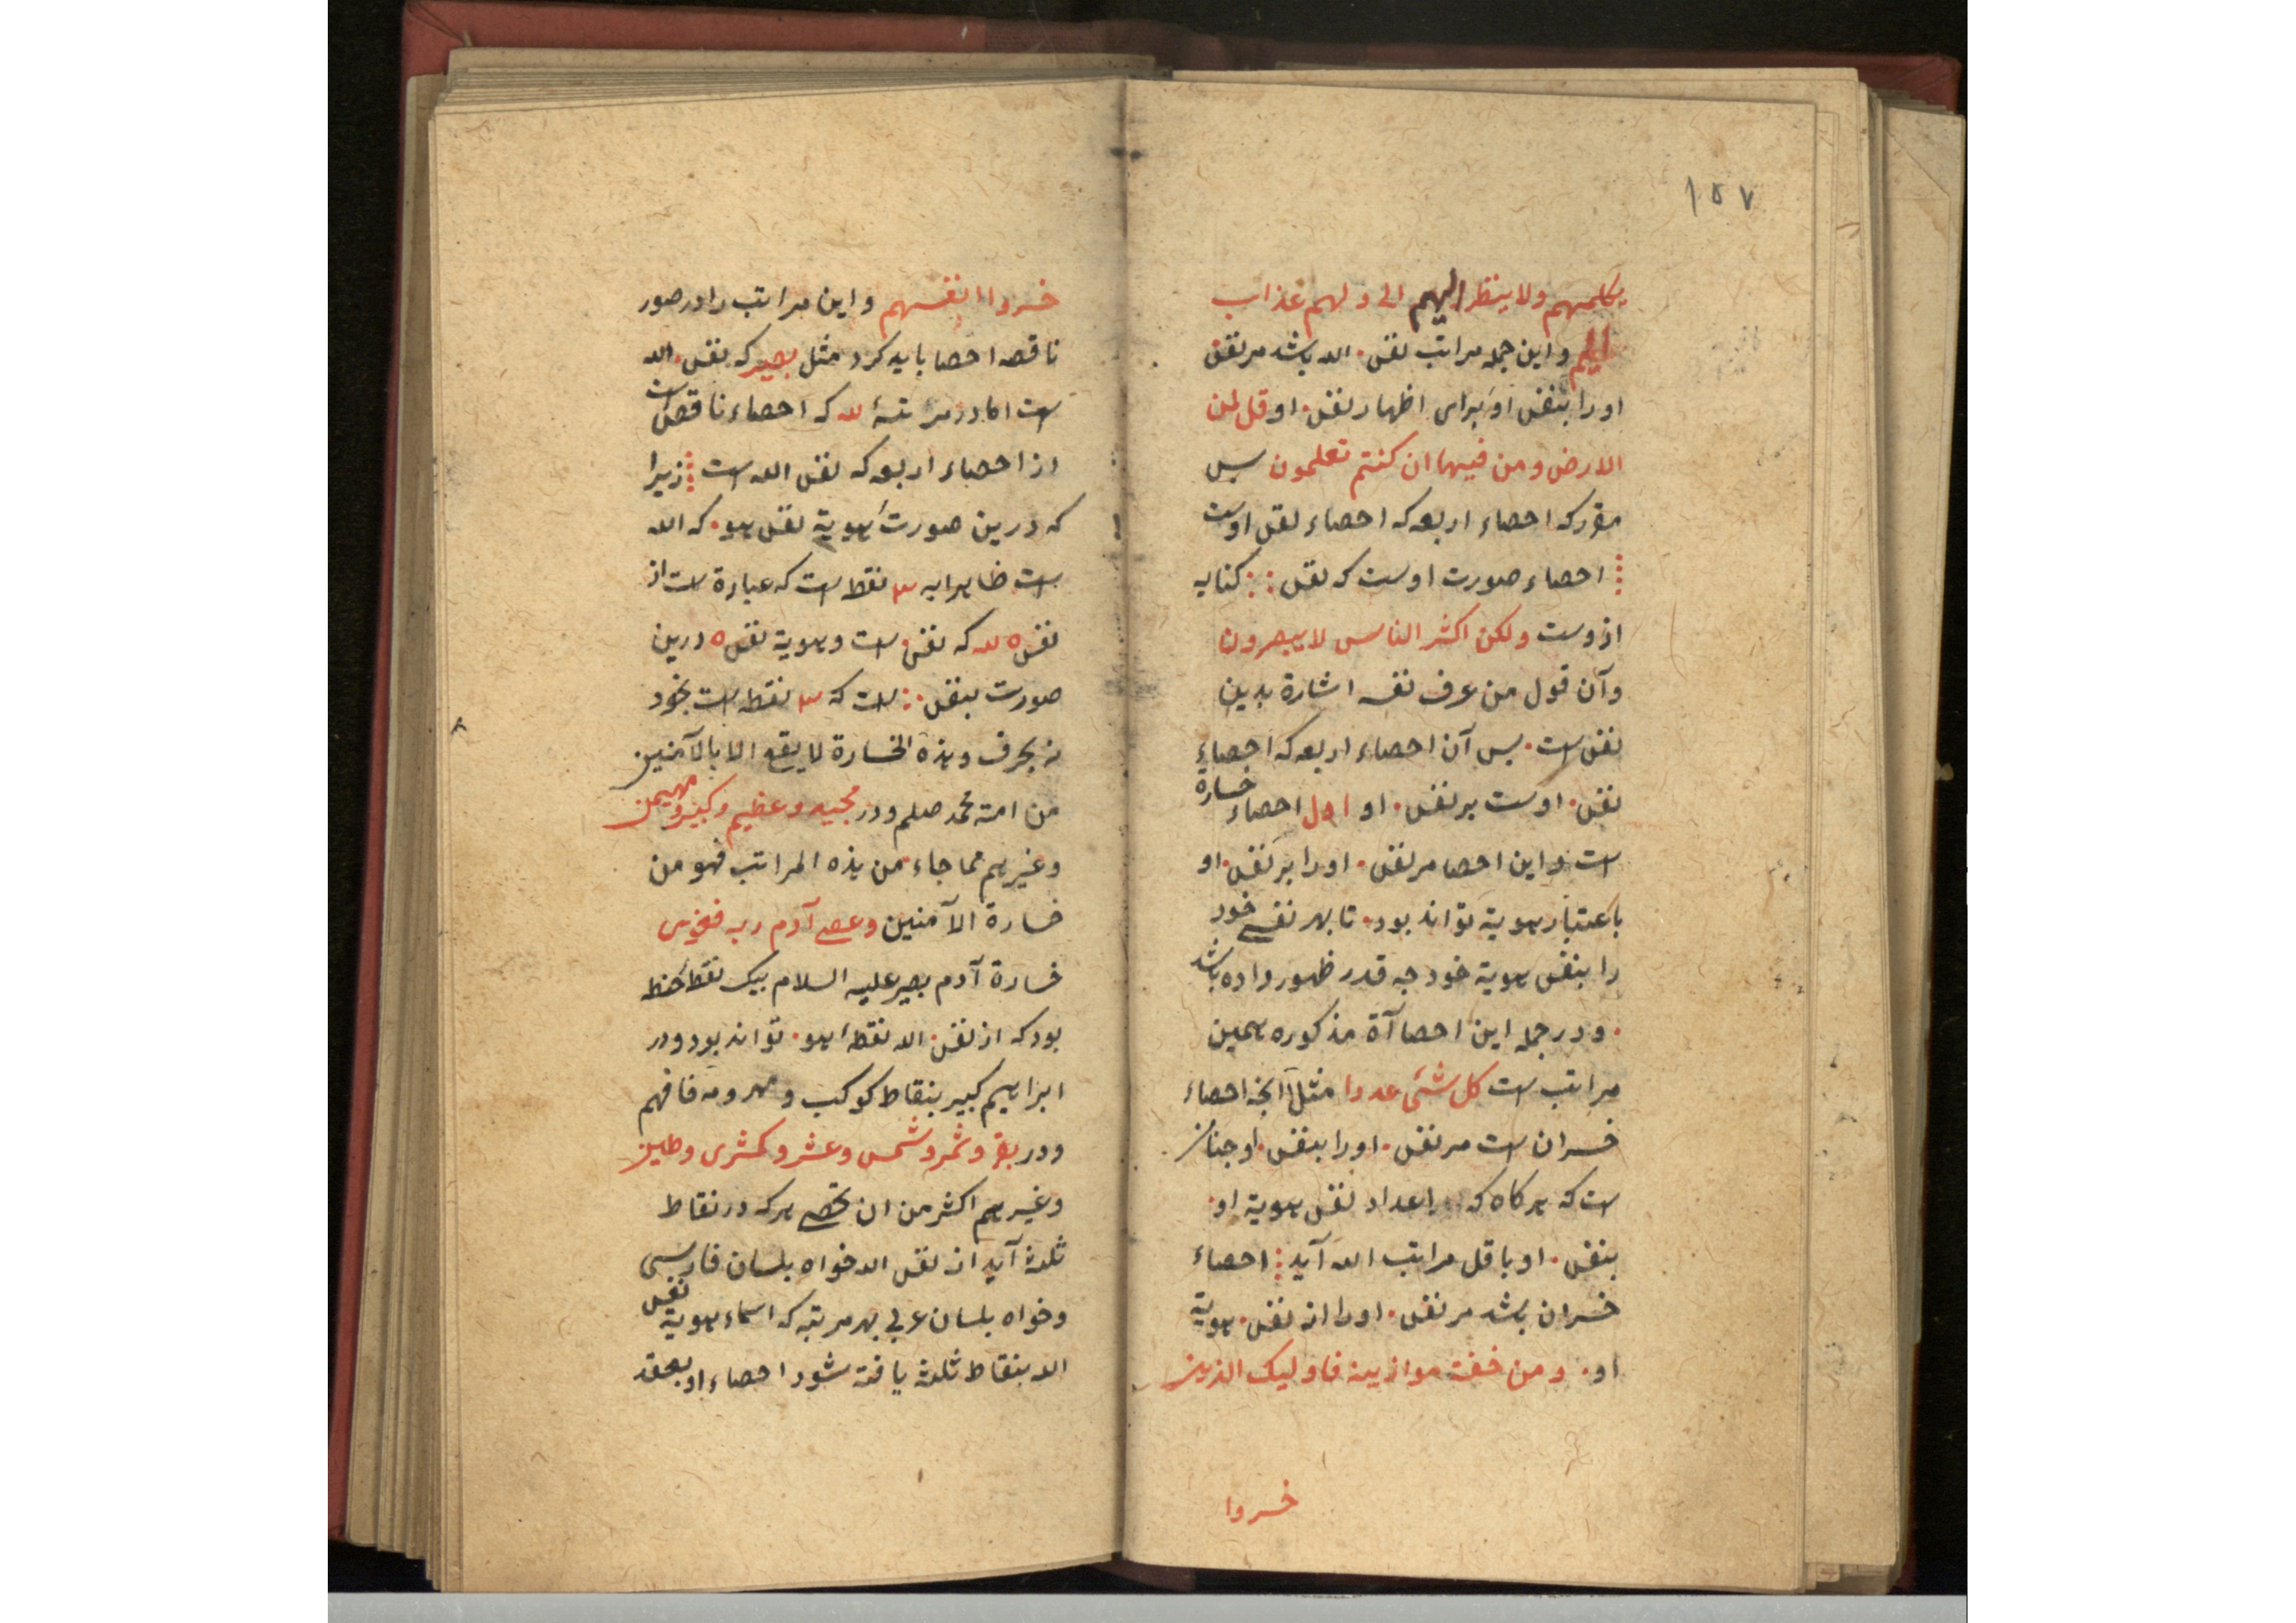 ۱۵۷
یکلمهم ولا ینظر الیهم الی ولهم عذاب
الیم و این جمله مراتب نفس . الله باشد مر نفس
او را بنفس او برای اظهار نفس . او قل لمن
الارض و من فیها ان کنتم تعلمون پس
مقرر که احصاء اربعه که احصاء نفس اوست
احصاء صورت اوست که نفس : : کنایه
ازوست ولکن اکثر الناس لا یبصرون
و آن قول من عرف نفسه اشارة بدین
نفس است . پس آن احصاء اربعه که احصاء
نفس . اوست بر نفس . او اول احصاء خسارة
است و این احصا مر نفس . او را بر نفس . او
باعتبار هویة تواند بود . تا بهر نفسی خود
را بنفس هویة خود چه قدر ظهور داده باشد
. و در جمله این احصاآة مذکوره همین
مراتب است کل شئ عددا مثلا آنچه احصاء
خسران است مر نفس . او را بنفس . او چنان
است که هرکاه که اعداد نفس هویة او .
بنفس . او باقل مراتب الله آید احصاء
خسران باشد مر نفس . او را از نفس . هویة
او . و من خفت موازینه فاولیک الذین
خسروا
خسروا انفسهم و این مراتب را در صور
ناقصه احصا باید کرد مثل بصیر که نفس . الله
است اما در مرتبهٔ لله که احصاء ناقص است
از احصاء اربعه که نفس الله است زیرا
که درین صورت هویة نفس هو . که الله
است ظاهرا به ۳ نقطه است که عبارة است از
نفس ه لله که نفس . است و هویة نفس ه درین
صورت بنفس : . است که ۳ نقطه است بخود
نه بحرف و هذه الخسارة لا یقع الا بالآمنین
من امة محمد صلعم و در مجید و عظیم و کبیر و مهیمن
و غیرهم مما جاء من هذه المراتب فهو من
خسارة الآمنین و عصی آدم ربه فغوی
خسارة آدم بصیر علیه السلام بیک نقطه فقط
بود که از نفس . الله نقطه هو . تواند بود و در
ابراهیم کبیر بنقاط کوکب و مهر و مه فافهم
و در بقر و ثمر و شمس و عشر و کمثری و طین
و غیرهم اکثر من ان تحصی هر که در نقاط
ثلثه آید از نفس الله خواه بلسان فارسی
و خواه بلسان عربی بهر مرتبه که اسماء هویة نفس
الله بنقاط ثلثه یافته شود احصاء او بعقد